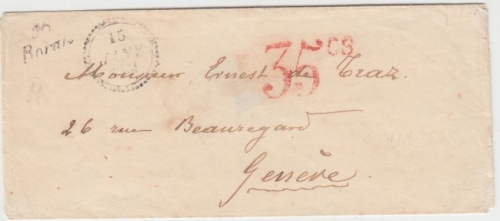 15
JANV
35 CS
Monsieur Ernest de Traz.
26 rue Beauregard
Genève